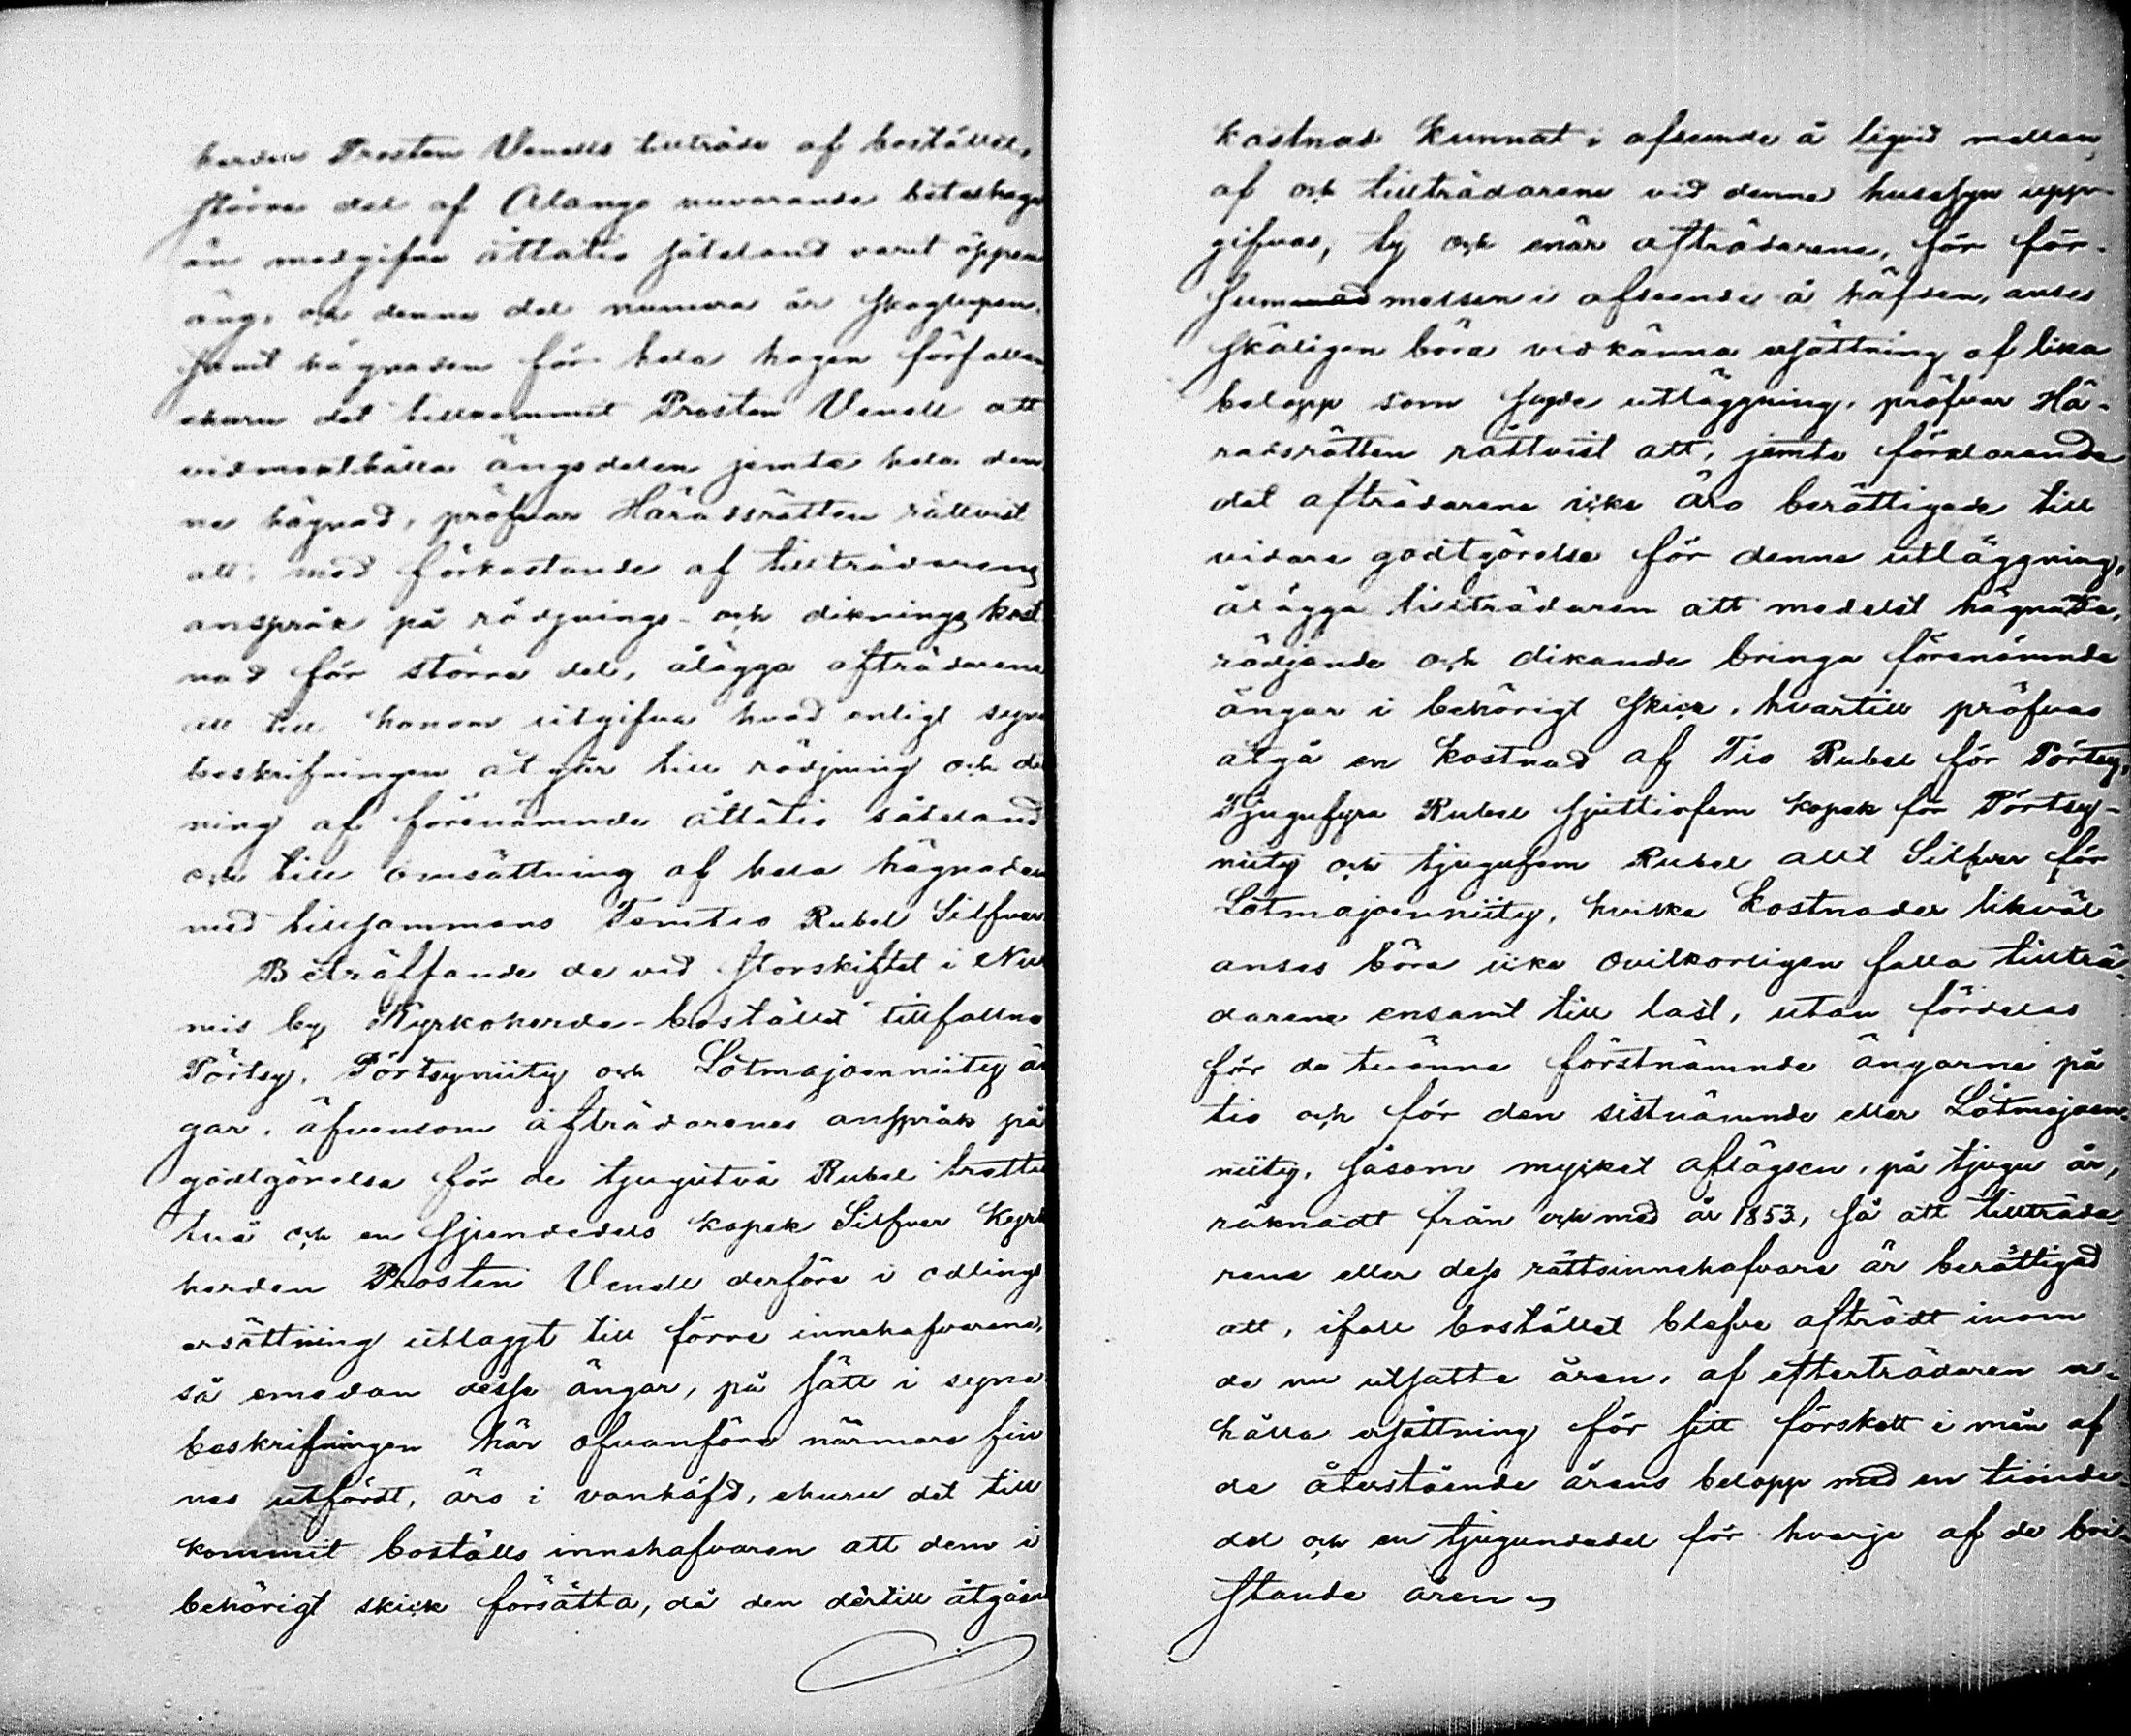 herden Prosten Venells tillträde af bostället,
större del af Alango nuvarande beteshage
än medgifne åttatio såteland varit öppen
äng, och denne del numera är skoglupen,
samt hägnaden för hela hagen förfallen
ehuru det tillkommit Prosten Venell att
vidmakthålla ängsdelen jemte hela den
ne hägnad, pröfvar Häradsrätten rättvist
att, med förkastande af tillträdarens
anspråk på rödjnings- och diknings kost
nad för större del, ålägga afträdarene
att till honom utgifva hvad enligt syne
beskrifningen åtgår till rödjning och dik
ning af förenämnde åttatio såteland
och till omsättning af hela hägnaden
med tillsammans Femtio Rubel Silfver
Beträffande de vid storskiftet i Nie
mis by Kyrkoherde-bostället tillfallne
Pörtsy, Pörtsyniity och Lotmajoenniity än
gar, äfvensom afträdarenes anspråk på
godtgörelse för de tjugutvå Rubel trettio
två och en sjundedels kopek Silfver Kyrko
herden Prosten Venell derföre i odlings
ersättning utlaggt till förre innehafvarene,
så emedan desse ängar, på sätt i syne
beskrifningen här ofvanföre närmare fin
nes utfördt, äro i vanhäfd, ehuru det till
kommit boställs innehafvaren att dem i
behörigt skick försätta, då den dertill åtgående
kostnad kunnat i afseende å liqvid mellan
af och tillträdarene vid denne husesyn upp-
gifvas, ty och enär afträdarene, för för-
summad melsen i afseende å häfden, anses
skäligen böra vidkänna ersättning af lika
belopp som sagde utläggning, pröfvar Hä-
radsrätten rättvist att, jemte förklarande
det afträdarene icke äro berättigade till
vidare godtgörelse för denne utläggning,
ålägga tillträdaren att medelst hägnande,
rödjande och dikande bringa förenämnde
ängar i behörigt skick, hvartill pröfvas
åtgå en kostnad af Tio Rubel för Pörtsy,
Tjugufyra Rubel sjuttiofem kopek för Pörtsy-
niity och tjugufem Rubel allt Silfver för
Lotmajoenniity, hvilka kostnader likväl
anses böra icke ovilkorligen falla tillträ-
darene ensamt till last, utan fördelas
för de tvänne förstnämnde ängarne på
tio och för den sistnämnde eller Lotmajoen-
niity, såsom mycket aflägsen, på tjugu år,
räknadt från och med år 1853, så att tillträda-
rene eller dess rättsinnehafvare är berättigad
att, ifall bostället blefve afträdt inom
de nu utsatte åren, af efterträdaren er-
hålla ersättning för sitt förskott i mån af
de återstående årens belopp med en tionde
del och en tjugundedel för hvarje af de bri-
stande åren